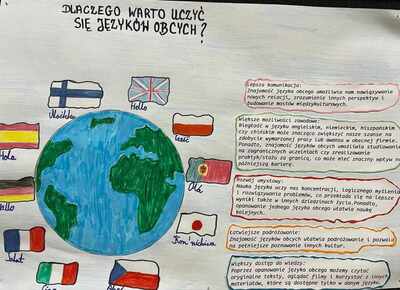 DLACZEGO WARTO UCZYĆ
SIĘ JĘZYKÓW OBCYCH?
Hello
Cześć
Hola
Olá
Hallo
Salut
Kon'nichiwa
Lepsza komunikacja:
Znajomość języka obcego umożliwia nam nawiązywanie
nowych relacji, zrozumienie innych perspektyw i
budowanie mostów międzykulturowych.
Większe możliwości zawodowe:
Biegłość w języku angielskim, niemieckim, hiszpańskim
czy chińskim może znacząco zwiększyć nasze szanse na
zdobycie wymarzonej pracy lub awans w obecnej firmie.
Ponadto, znajomość języków obcych umożliwia studiowanie
na zagranicznych uczelniach czy zrealizowanie
praktyk/stażu za granicą, co może mieć znaczny wpływ na
późniejszą karierę.
Rozwój umysłowy:
Nauka języków uczy nas koncentracji, logicznego myślenia
i rozwiązywania problemów, co przekłada się na lepsze
wyniki także w innych dziedzinach życia.Ponadto,
opanowanie jednego języka obcego ułatwia naukę
kolejnych.
Łatwiejsze podróżowanie:
Znajomość języków obcych ułatwia podróżowanie i pozwala
na pełniejsze poznawanie innych kultur.
Większy dostęp do wiedzy:
Poprzez opanowanie języka obcego możemy czytać
oryginalne teksty, oglądać filmy i korzystać z innych
materiałów, które są dostępne tylko w danym języku.